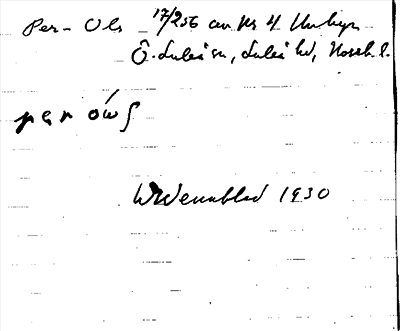 Per-Ols 17/256 av Nr 4 Unbyn
Ö. Luleå sn, Luleå hd, Norrb. l.
pęr ówʃ
Wennblad 1930